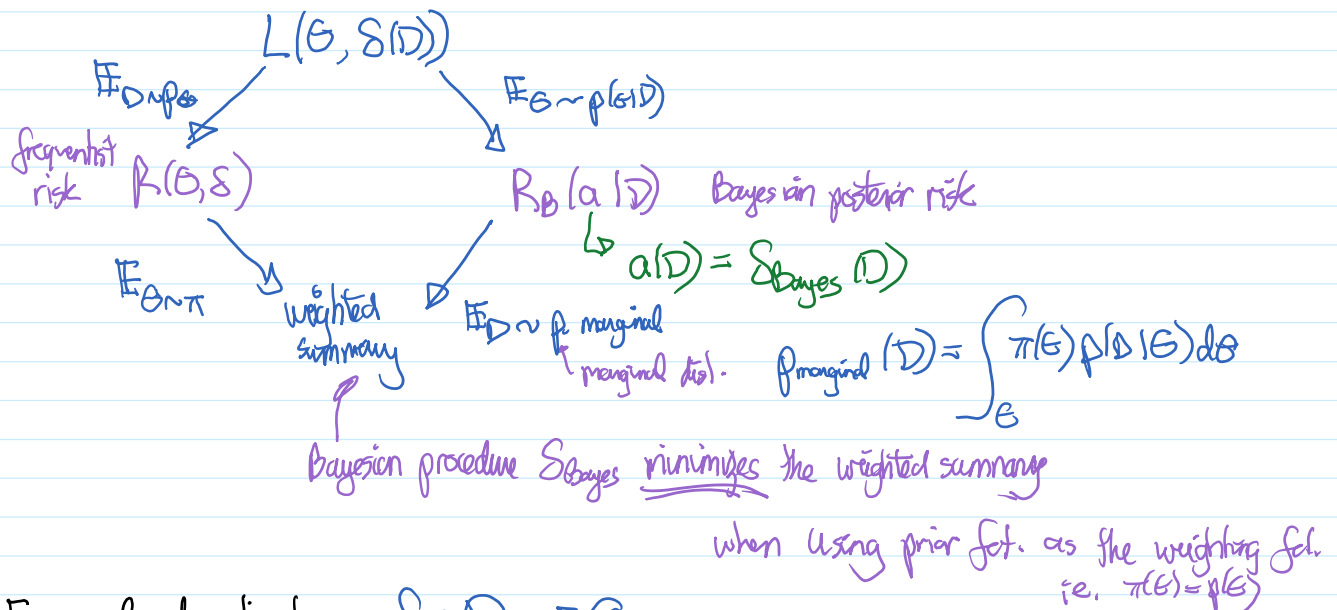 L(θ, δ(D))
𝔼_{D~p_θ}
𝔼_{θ~p(θ|D)}
frequentist risk
R(θ,δ)
R_B(a|D)
Bayesian posterior risk
a(D) = δ_{Bayes}(D)
𝔼_{θ~π}
weighted summary
𝔼_{D~p. marginal}
marginal dist.
p_{marginal}(D) = ∫_Θ π(θ)p(D|θ)dθ
Bayesian procedure δ_{Bayes} minimizes the weighted summary
when using prior fct. as the weighting fct.
ie. π(θ)=p(θ)